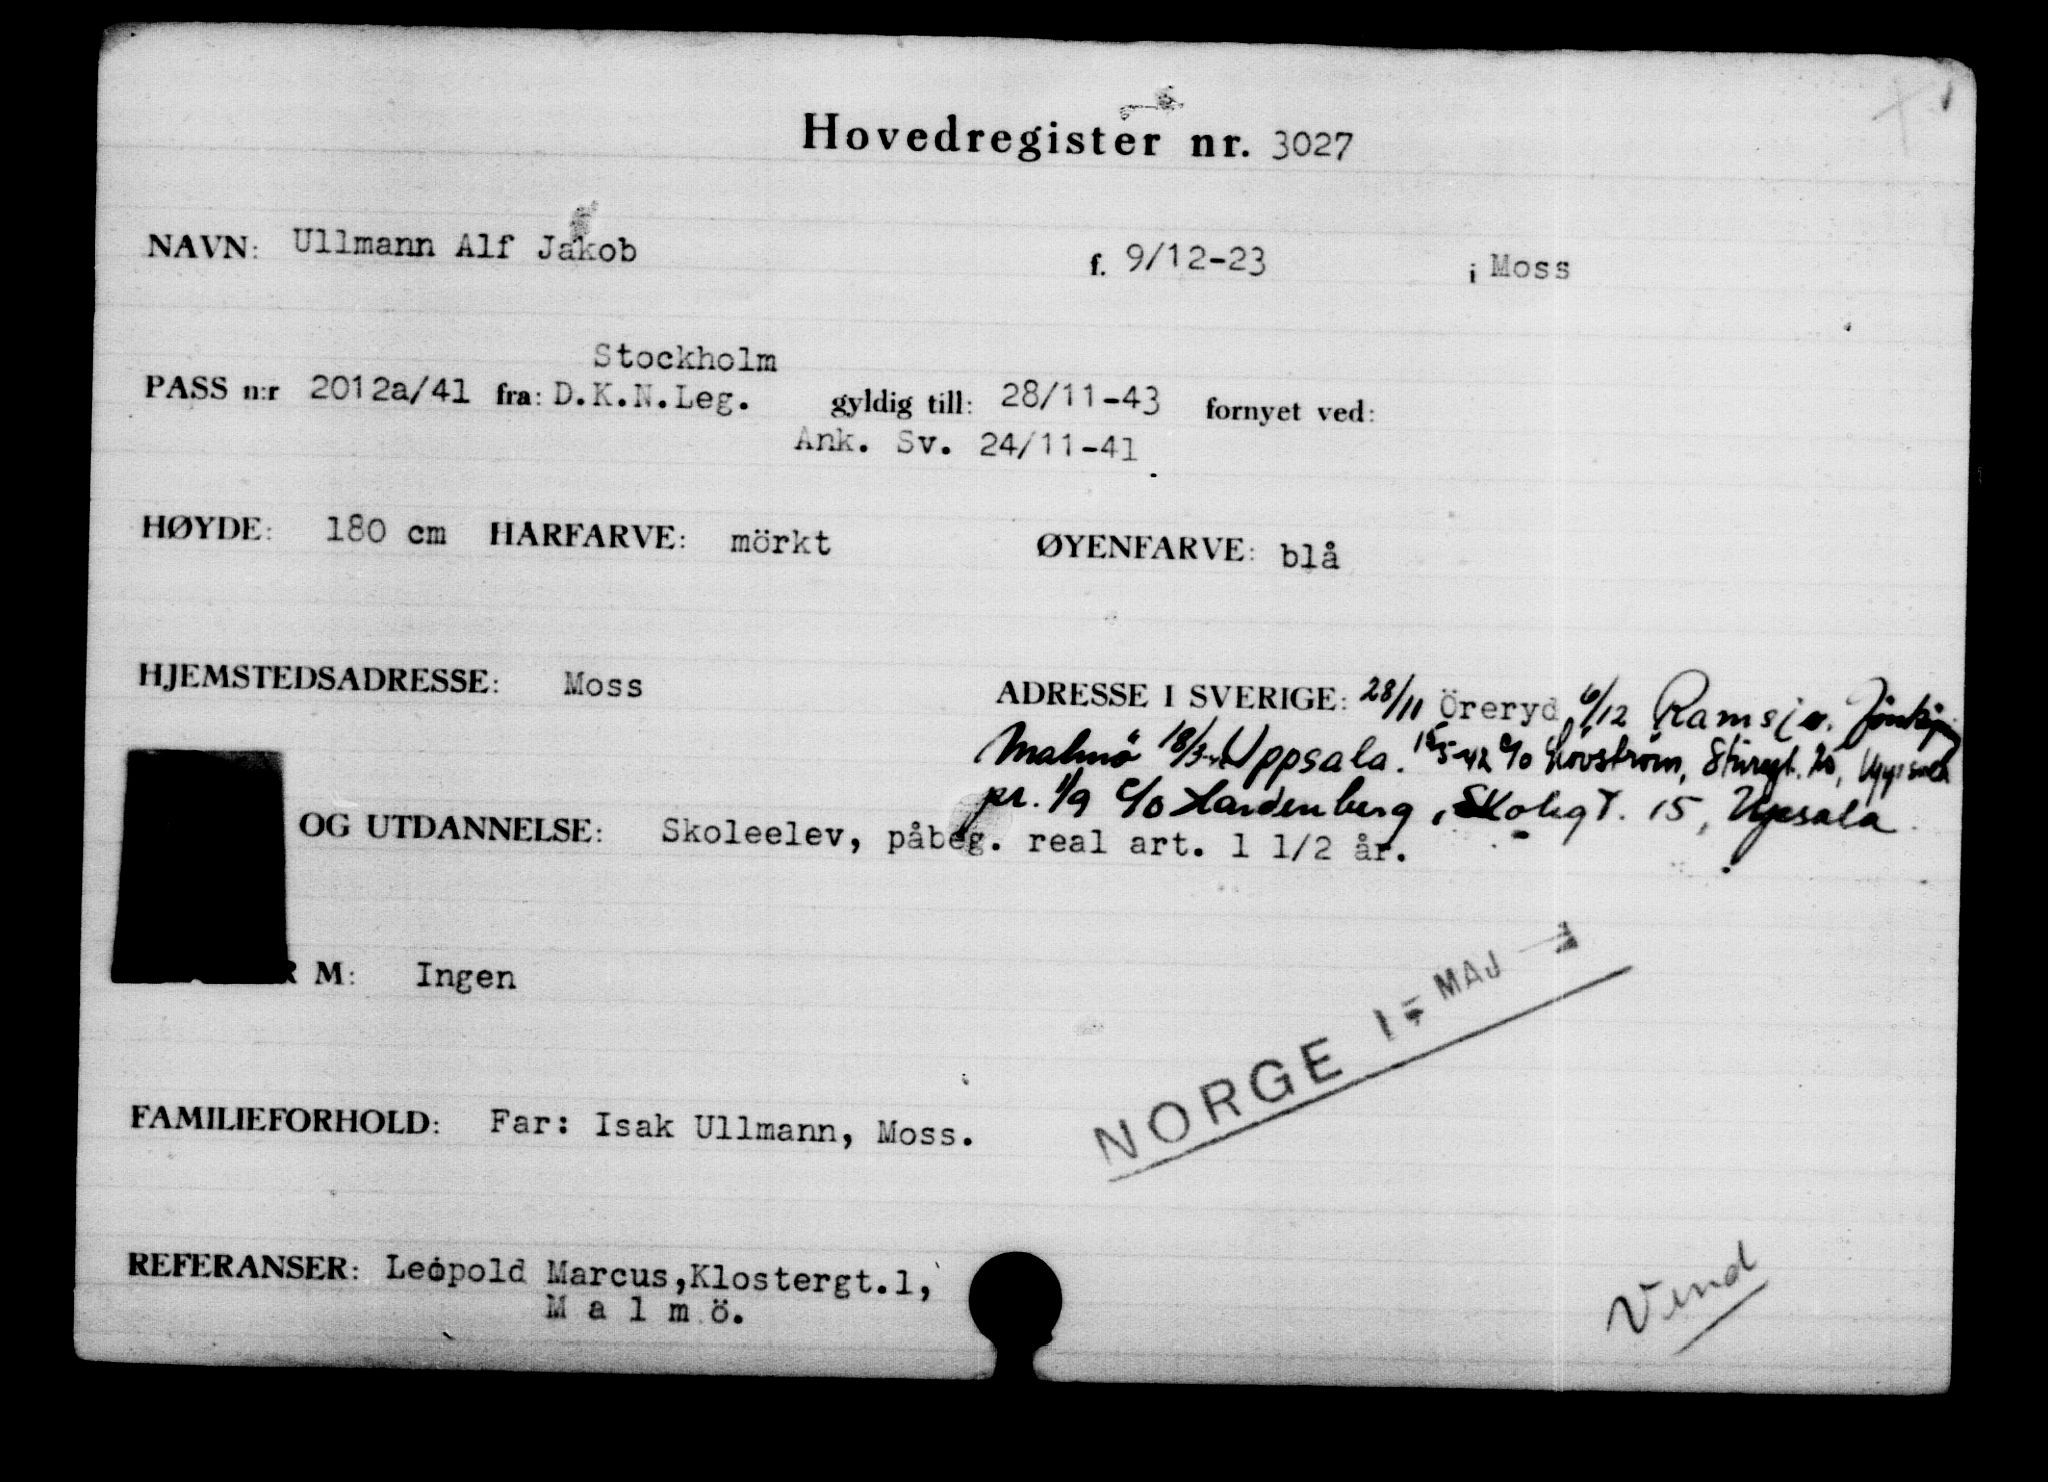 Hovedregister nr. 3027
NAVN: Ullmann Alf Jakob f. 9/12-23 i Moss
Stockholm
PASS n:r 2012a/41 fra: D.K.N.Leg. gyldig till: 28/11-43 fornyet ved:
Ank. Sv. 24/11-41
HØYDE: 180 cm HARFARVE: mörkt ØYENFARVE: blå
HJEMSTEDSADRESSE: Moss ADRESSE I SVERIGE: 28/11 Öreryd 6/12 Ramsjö
Malmö 18/3 Uppsala. 5-42 c/o Lövström, Sturegt. Uppsala
pr. 1/9 c/o Hardenberg, Skolgt. 15, Upsala
OG UTDANNELSE: Skoleelev, påbeg. real art. 1 1/2 år.
R M: Ingen
NORGE MAJ
FAMILIEFORHOLD: Far: Isak Ullmann, Moss.
REFERANSER: Leopold Marcus, Klostergt.1,
M a l m ö.
Vend